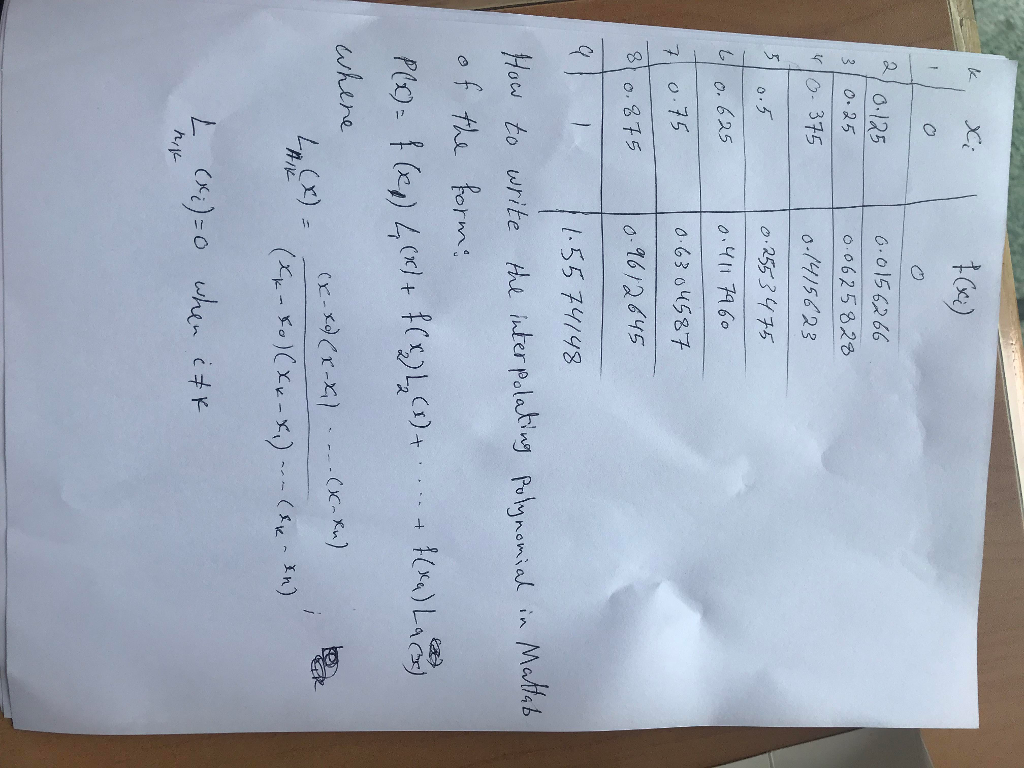 k xi f(xi)
1 0 0
2 0.125 0.0156266
3 0.25 0.0625828
4 0.375 0.1415623
5 0.5 0.2553475
6 0.625 0.4117960
7 0.75 0.6304587
8 0.875 0.9612645
9 1 1.5574148
How to write the interpolating polynomial in Matlab
of the form:
P(x) = f(x1) L1(x) + f(x2) L2(x) + ..... + f(x9) L9(x)
where
Ln,k(x) = (x-x0)(x-x1) .... (x-xn)
(xk-x0)(xk-x1) ... (xk-xn) ;
Ln,k (xi) = 0 when i ≠ k